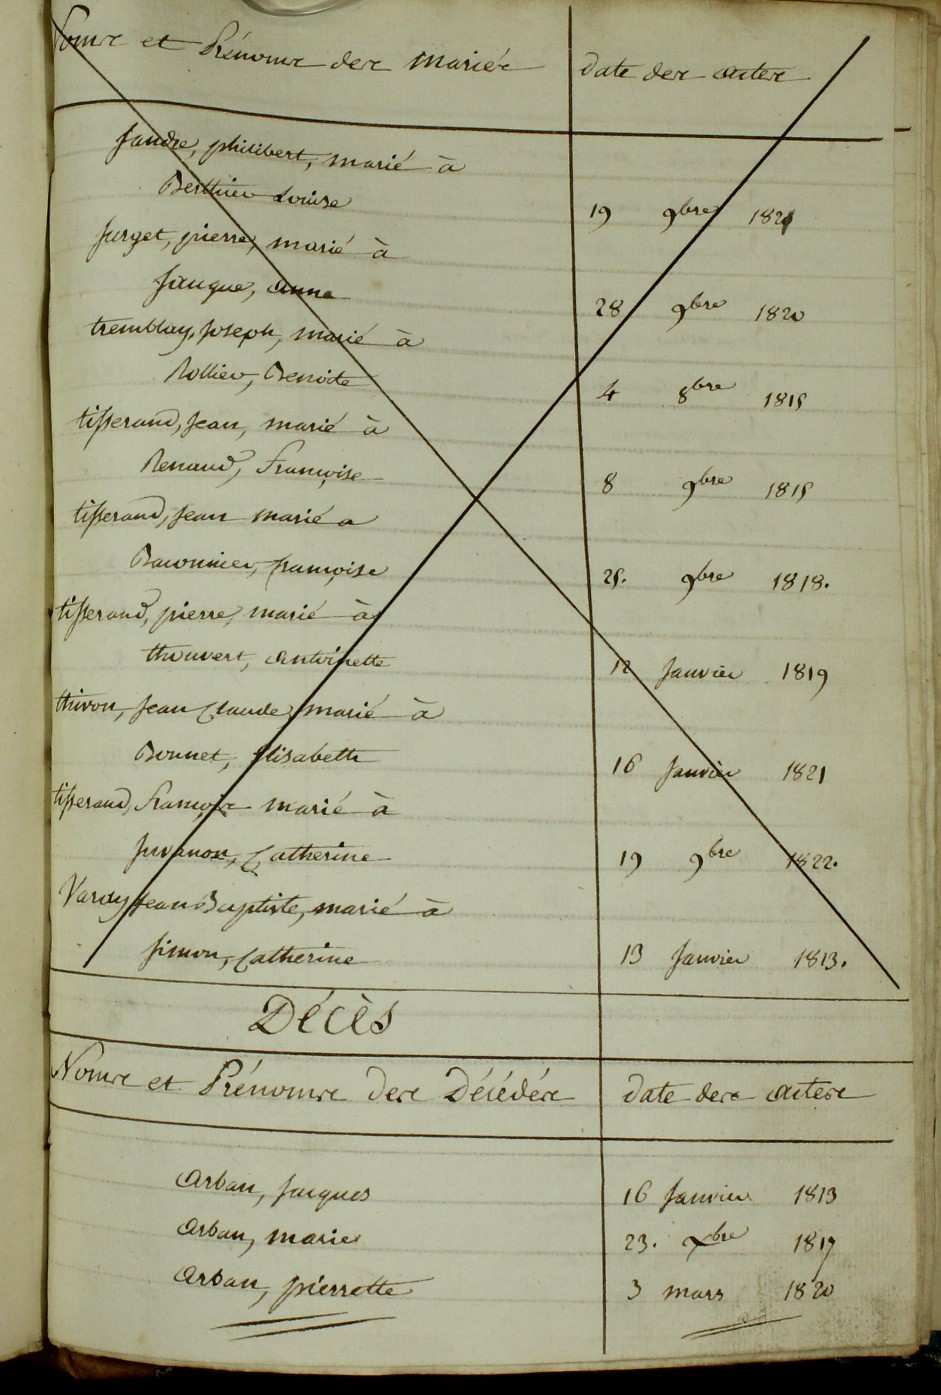 Noms et Prénoms des mariés date des actes
Jandre, philibert, marié à
Berthier Louise 19 9bre 1821
Jurget, pierre, marié à
Janque, anne 28 9bre 1820
tremblay, Joseph, marié à
Rollier, Benoite 4 8bre 1815
tisserand, Jean, marié à
Renaud, Françoise 8 9bre 1815
tisserand, Jean marié a
Baronnier, françoise 25. 9bre 1818.
tisserand, pierre, marié à
thouvert, antoinette 12 Janvier 1819
thivon, Jean Claude, marié à
Bonnet, Elisabeth 16 Janvier 1821
tisserand, François marié à
Juvanon, Catherine 19 9bre 1822.
Varay Jean Baptiste, marié à
Simon, Catherine 13 Janvier 1813.
Décès
Noms et Prénoms des Décédés date des actes
Arban, Jacques 16 Janvier 1813
Arban, marie 23. Xbre 1817
Arban, pierrette 3 mars 1820